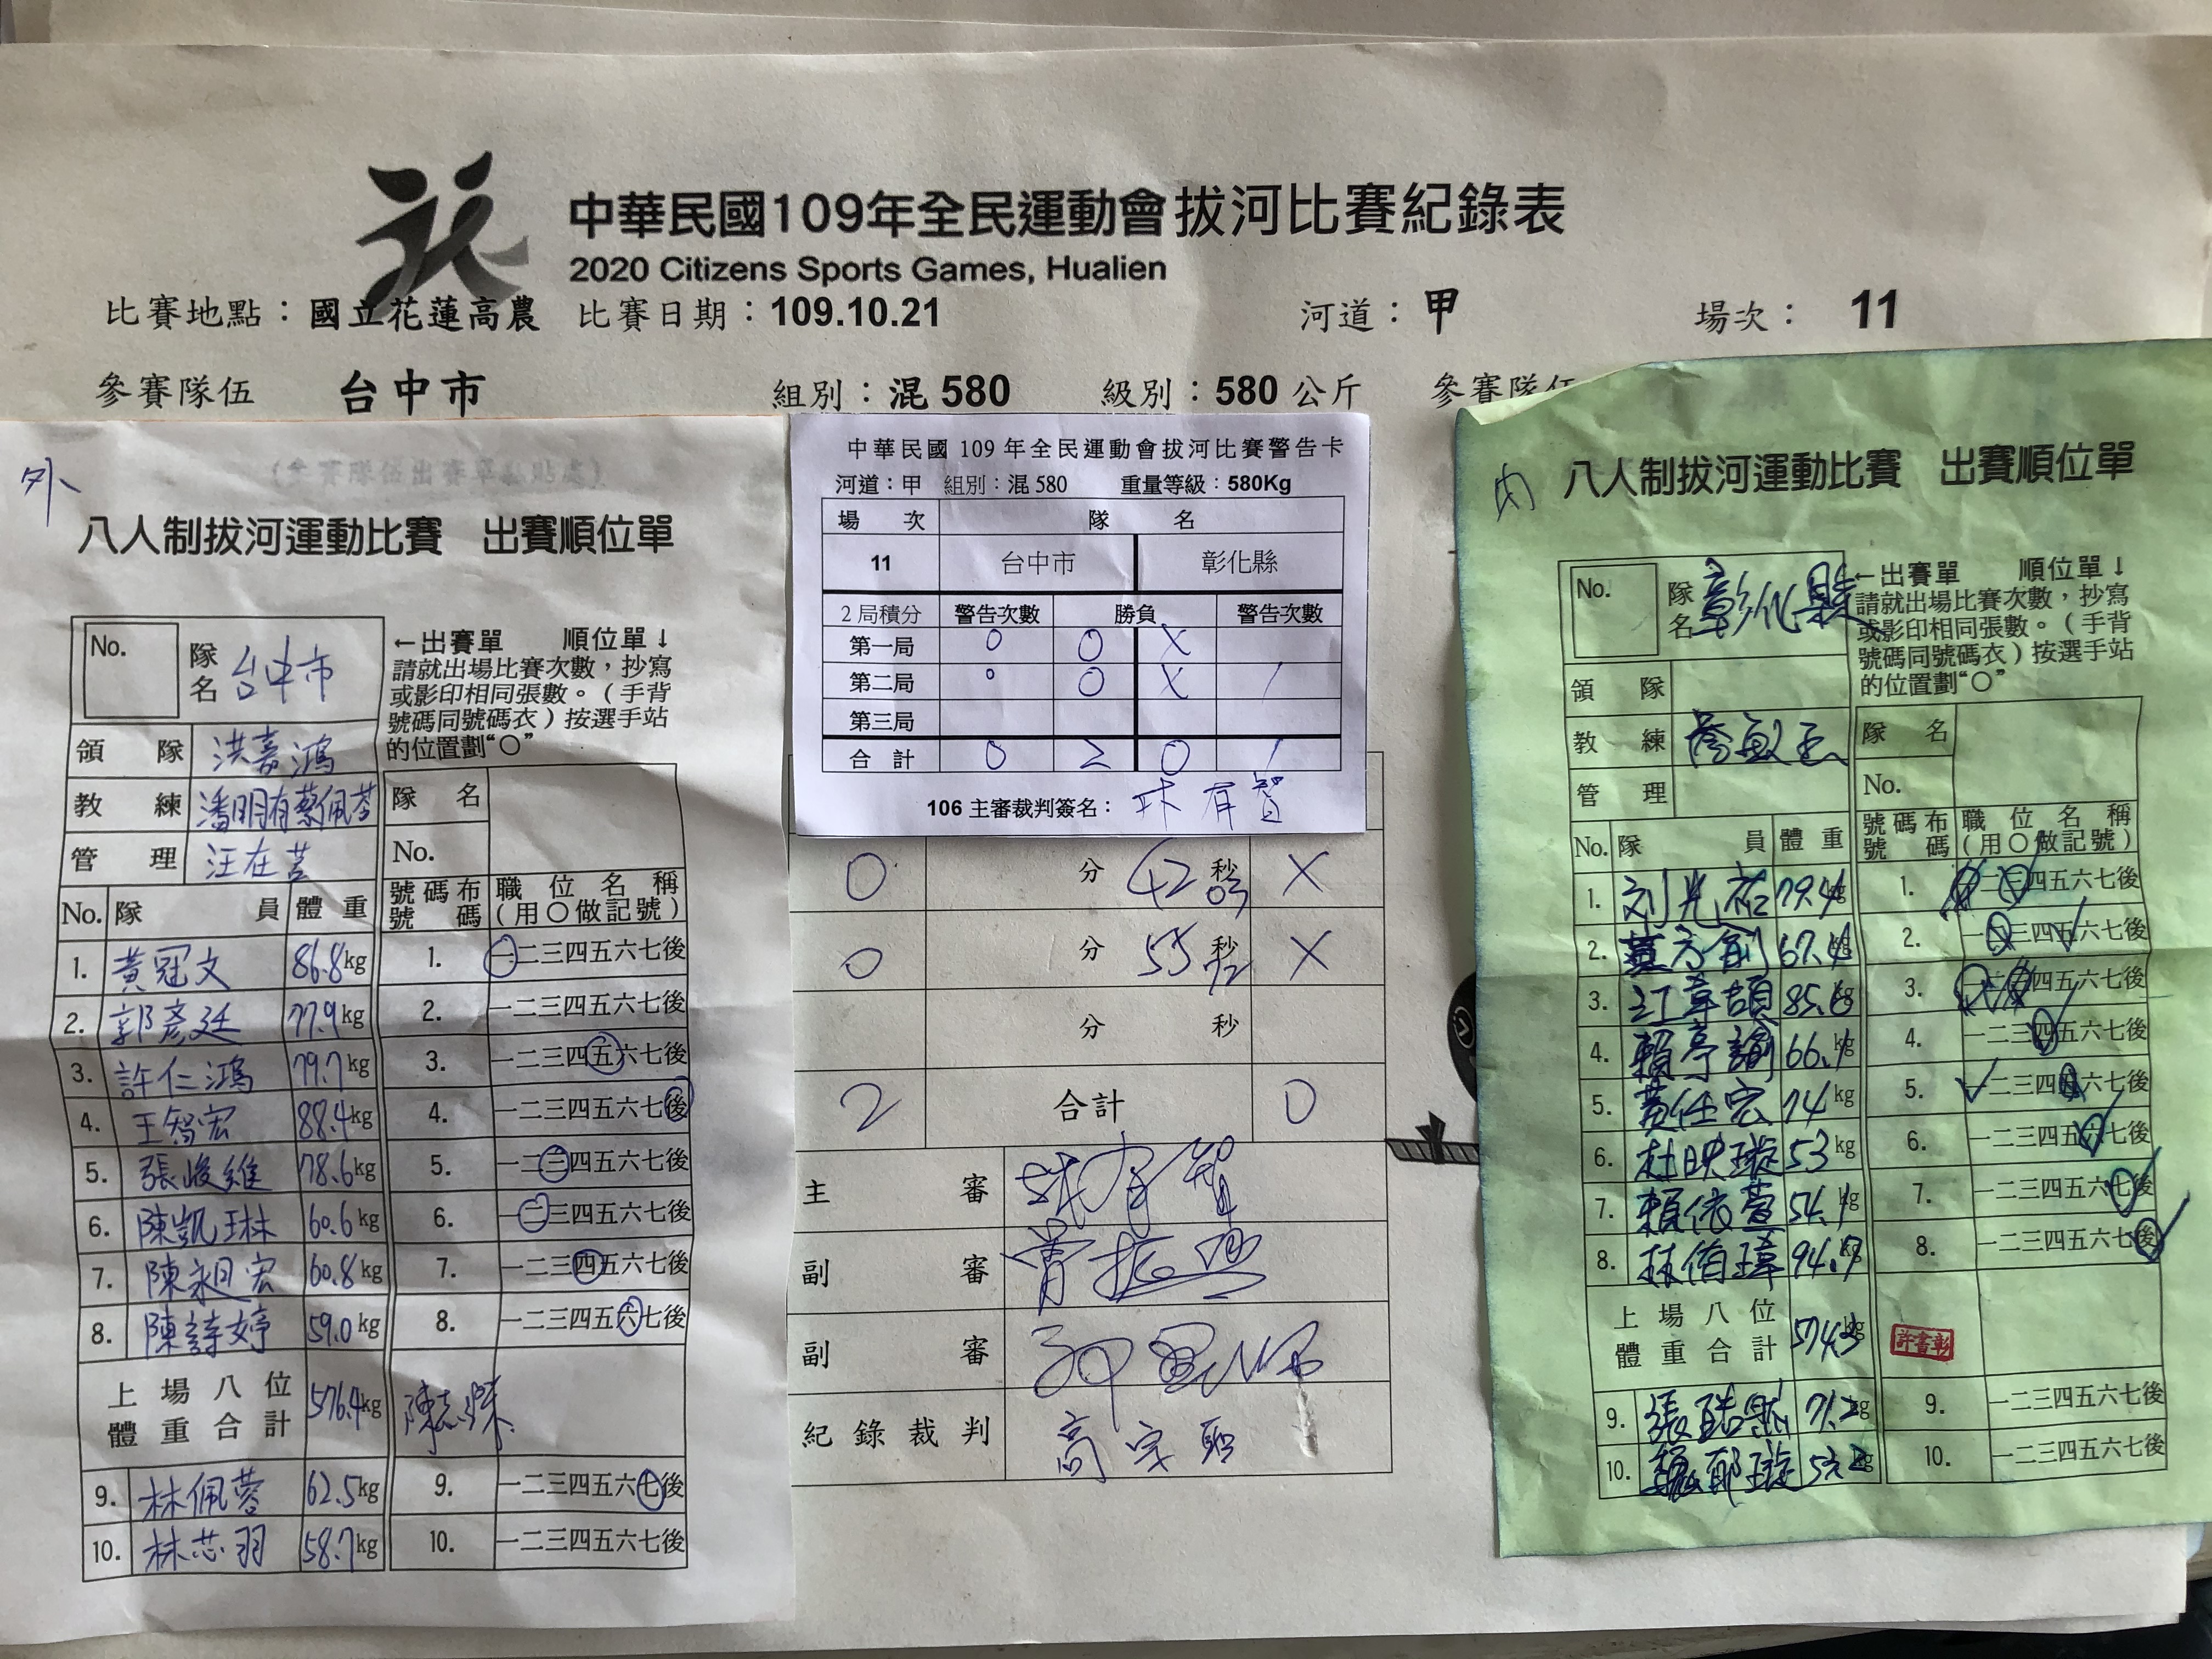 中華民國109年全民運動會拔河比賽紀錄表
2020 Citizens Sports Games, Hualien
比賽地點：國立花蓮高農 比賽日期：109.10.21 河道：甲 場次： 11
參賽隊伍 台中市 組別：混 580 級別：580 公斤 參賽隊伍
外
(參賽隊伍出賽單黏貼處)
八人制拔河運動比賽 出賽順位單
No. 隊名 台中市
←出賽單 順位單↓
請就出場比賽次數，抄寫
或影印相同張數。（手背
號碼同號碼衣）按選手站
的位置劃“○”
領隊 洪嘉鴻
教練 潘明有蔡佩苓
管理 汪在莒
隊名
No.
No. 隊員 體重 號碼布號碼 職位名稱(用○做記號)
1. 黃冠文 86.8kg 1. 一二三四五六七後
2. 郭彥廷 77.9kg 2. 一二三四五六七後
3. 許仁鴻 79.7kg 3. 一二三四五六七後
4. 王智宏 88.4kg 4. 一二三四五六七後
5. 張峻維 78.6kg 5. 一二三四五六七後
6. 陳凱琳 60.6kg 6. 一二三四五六七後
7. 陳昶宏 60.8kg 7. 一二三四五六七後
8. 陳詩婷 59.0kg 8. 一二三四五六七後
上場八位體重合計 576.4kg
9. 林佩蓉 62.5kg 9. 一二三四五六七後
10. 林芯羽 58.7kg 10. 一二三四五六七後
中華民國 109 年全民運動會拔河比賽警告卡
河道：甲 組別：混 580 重量等級：580Kg
場次 隊名
11 台中市 彰化縣
2 局積分 警告次數 勝負 警告次數
第一局 0 O X
第二局 0 O X /
第三局
合計 0 2 0 /
106 主審裁判簽名：
O 分 42 秒 03 X
O 分 55 秒 72 X
分 秒
2 合計 0
主審
副審
副審
紀錄裁判
內
八人制拔河運動比賽 出賽順位單
No. 隊名 彰化縣
←出賽單 順位單↓
請就出場比賽次數，抄寫
或影印相同張數。（手背
號碼同號碼衣）按選手站
的位置劃“○”
領隊
教練
管理
隊名
No.
No. 隊員 體重 號碼布號碼 職位名稱(用○做記號)
1. 刘光祐 79.4kg 1. 一二三四五六七後
2. 67.4kg 2. 一二三四五六七後
3. 江韋頡 85.6kg 3. 一二三四五六七後
4. 賴亭諭 66.1kg 4. 一二三四五六七後
5. 黃任宏 74kg 5. 一二三四五六七後
6. 杜映璇 53kg 6. 一二三四五六七後
7. 賴依萱 54.1kg 7. 一二三四五六七後
8. 林侑瑋 94.7kg 8. 一二三四五六七後
上場八位體重合計 574.3kg 許書彰
9. 71.2kg 9. 一二三四五六七後
10. 10. 一二三四五六七後